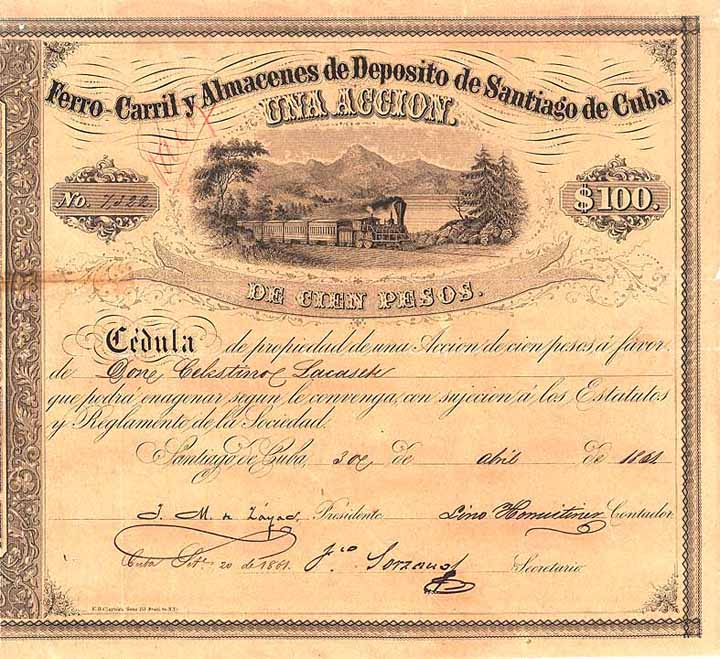 Ferro-Carril y Almacenes de Deposito de Santiago de Cuba
UNA ACCION.
No. 7522
$100.
DE CIEN PESOS.
Cédula de propiedad de una Accion de cien pesos, á favor
de Don Celestino
que podrá enagenar segun le convenga, con sujecion á los Estatutos
y Reglamento de la Sociedad.
Santiago de Cuba, 30 de abril de 1861.
J. M. de Zayas, Presidente. Lino Contador
Cuba Set. 20 de 1861. Fco Sorzano
Secretario.